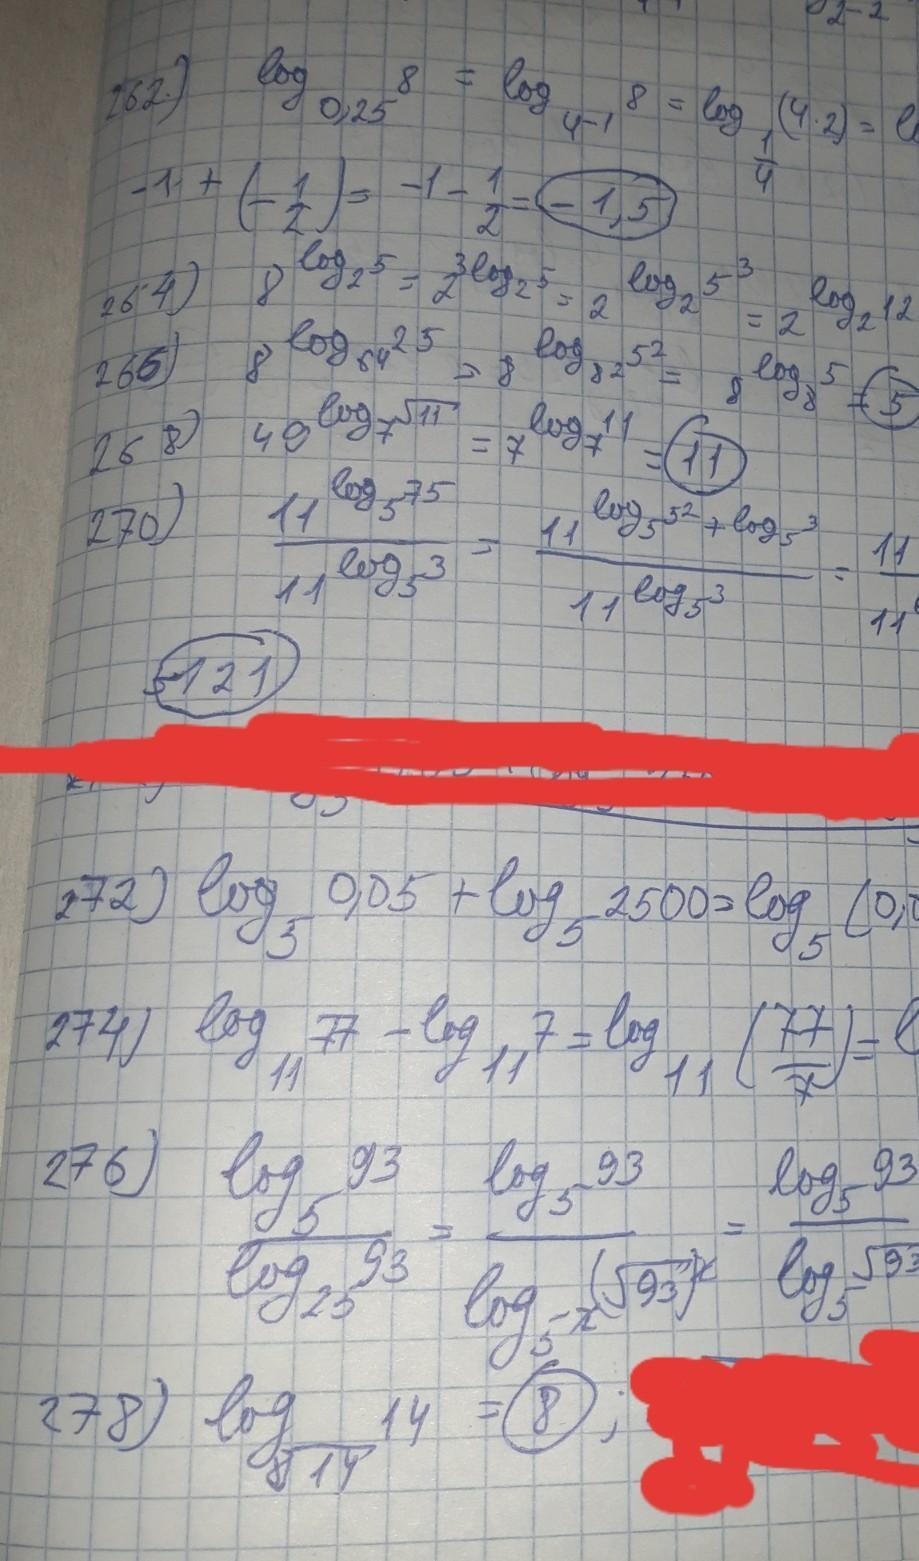 262.) log_{0,25} 8 = log_{4^{-1}} 8 = log_{\frac{1}{4}} (4·2) =
-1 + (-\frac{1}{2}) = -1 - \frac{1}{2} = -1,5
264) 8^{log_2 5} = 2^{3log_2 5} = 2^{log_2 5^3} = 2^{log_2 12
266) 8^{log_{64} 25} = 8^{log_{8^2} 5^2} = 8^{log_8 5} = 5
268) 49^{log_7 \sqrt{11}} = 7^{log_7 11} = 11
270) \frac{11^{log_5 75}}{11^{log_5 3}} = \frac{11^{log_5 5^2 + log_5 3}}{11^{log_5 3}} = \frac{11}{11}
=121
272) log_5 0,05 + log_5 2500 = log_5 (0,0
274) log_{11} 77 - log_{11} 7 = log_{11} (\frac{77}{7}) =
276) \frac{log_5 93}{log_{25} 93} = \frac{log_5 93}{log_{5^2} (\sqrt{93})^2} = \frac{log_5 93}{log_5 \sqrt{93}}
278) log_{\sqrt[8]{14}} 14 = 8 ;